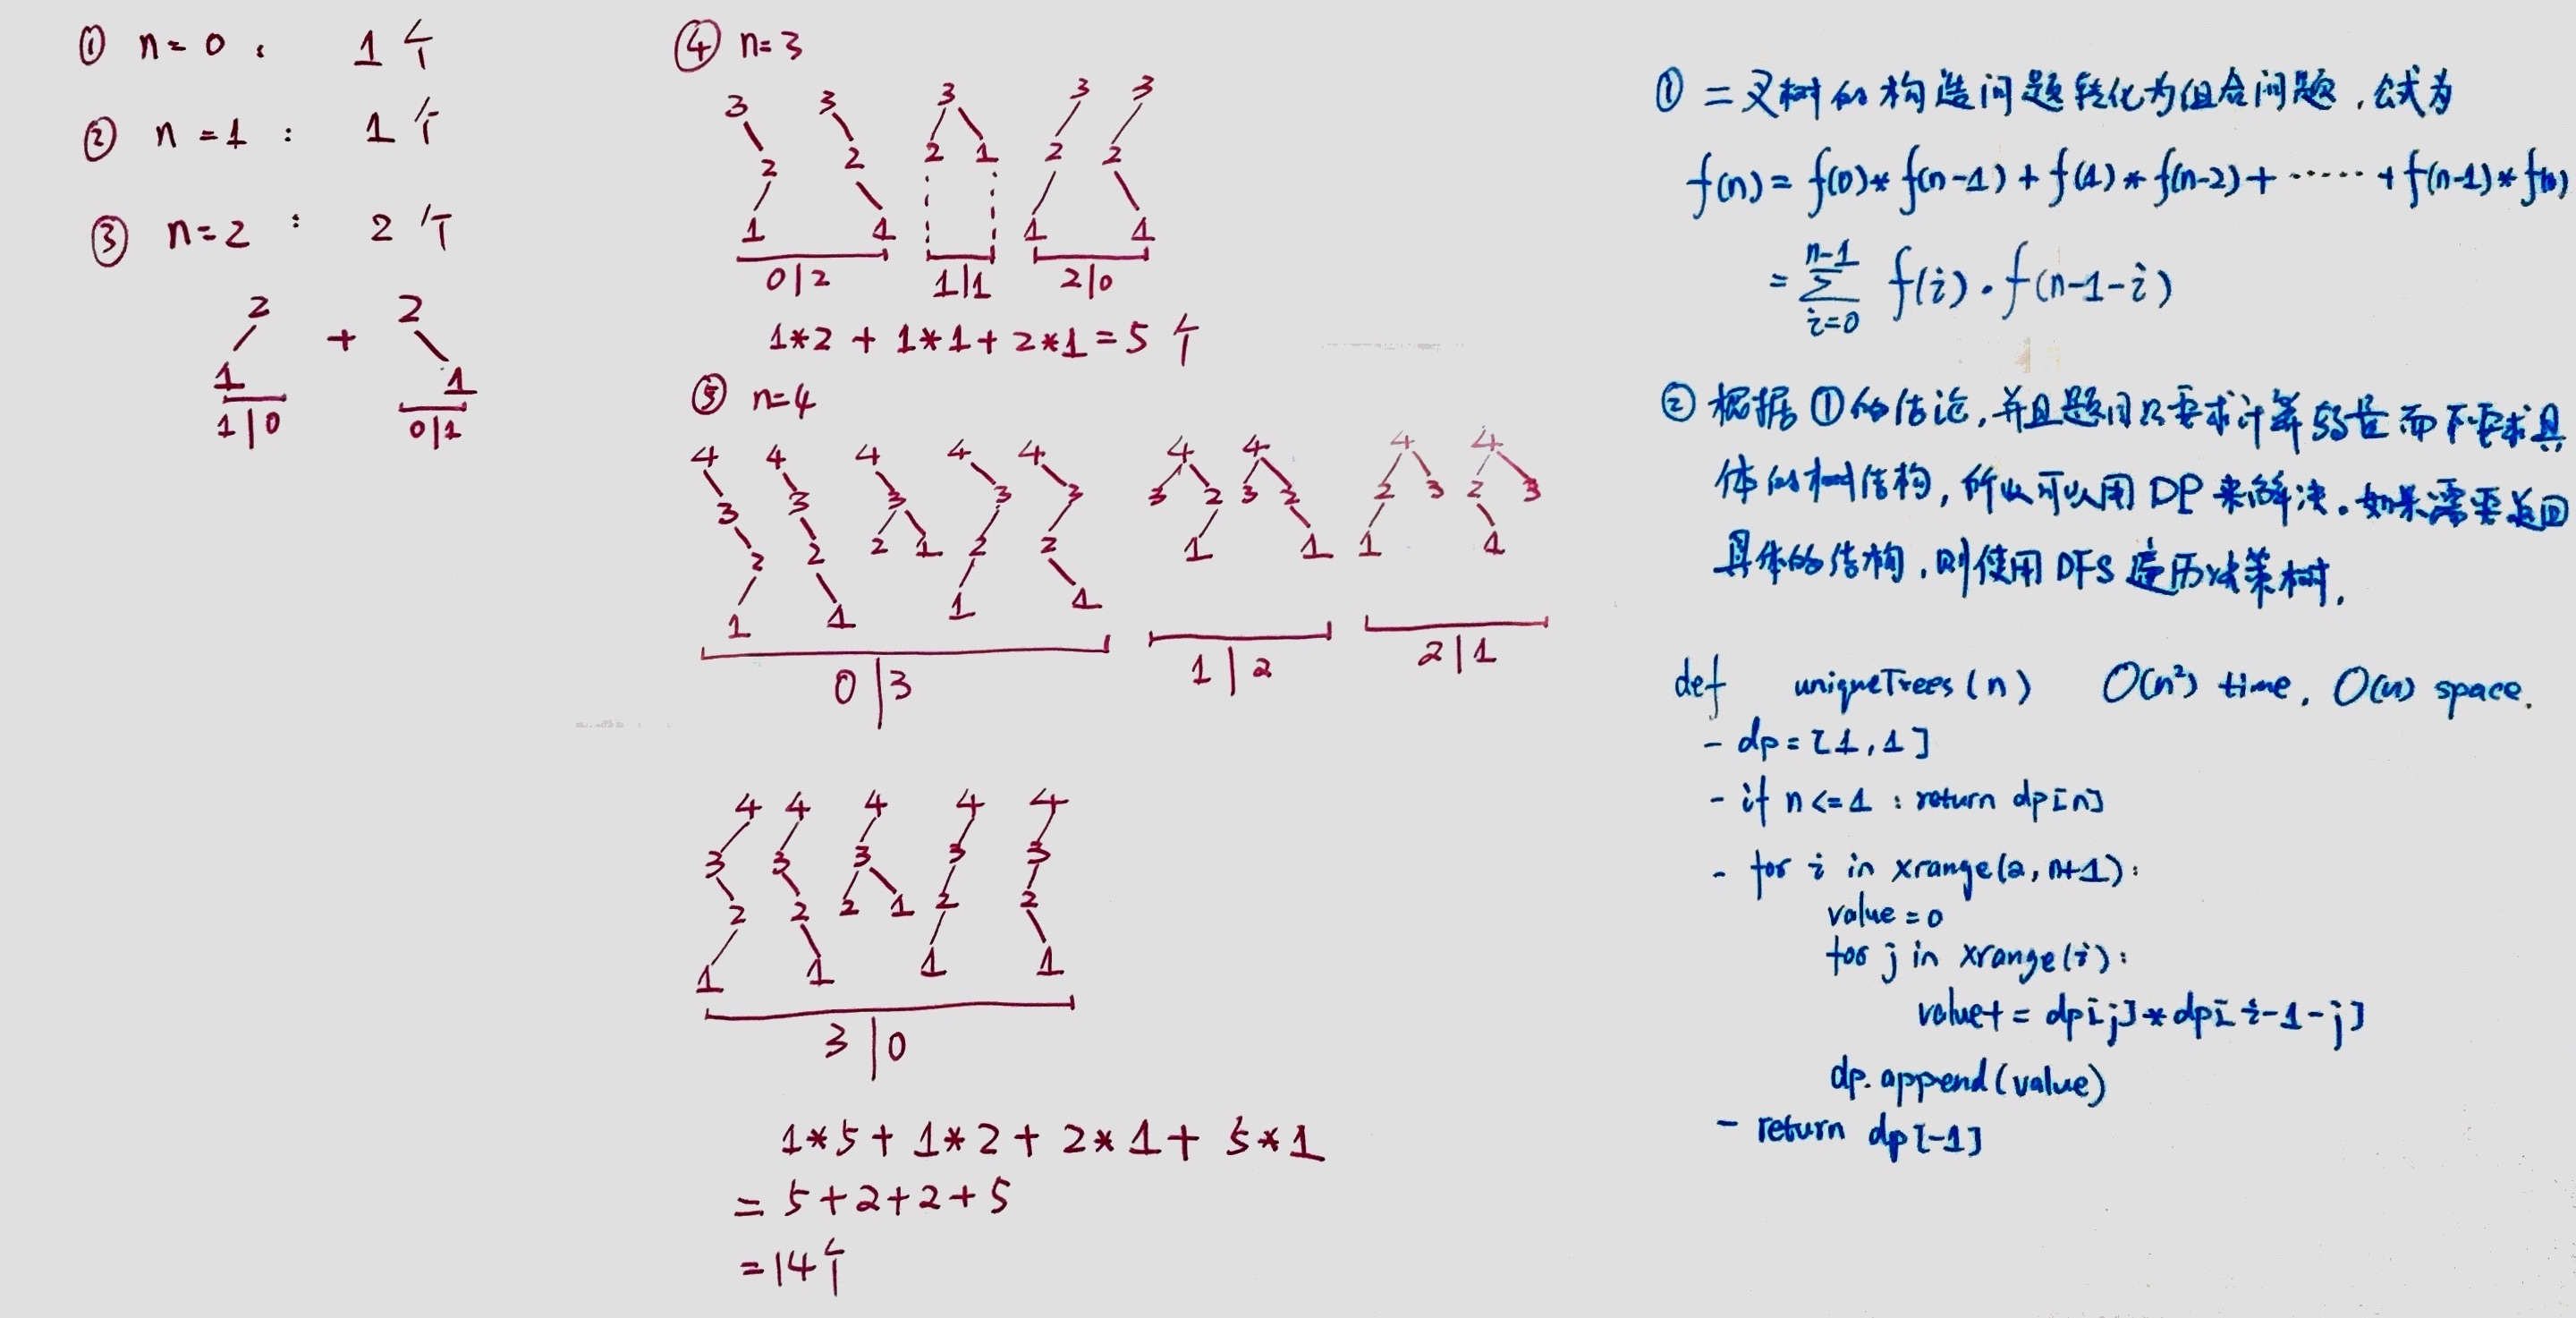 ① n=0: 1个
② n=1: 1个
③ n=2: 2个
2 + 2
1 1
1|0 0|1
④ n=3
3 3 3 3 3
2 2 2 1 2 2
1 1 1 1
0|2 1|1 2|0
1*2 + 1*1 + 2*1 = 5个
⑤ n=4
4 4 4 4 4 4 4 4 4
3 3 3 3 3 3 2 3 2 2 3 2 3
2 2 2 1 2 2 1 1 1 1
1 1 1 1
0|3 1|2 2|1
4 4 4 4 4
3 3 3 3 3
2 2 2 1 2 2
1 1 1 1
3|0
1*5 + 1*2 + 2*1 + 5*1
= 5+2+2+5
=14个
① 二叉树的构造问题转化为组合问题,公式为
f(n) = f(0)* f(n-1) + f(1) * f(n-2) + ······ + f(n-1) * f(0)
= n-1 Σ i=0 f(i) · f(n-1-i)
② 根据①的结论,并且题目只要求计算数量而不要求具
体的树结构,所以可以用DP来解决。如果需要返回
具体的结构,则使用DFS遍历决策树.
def uniqueTrees(n) O(n²) time, O(n) space.
- dp = [1,1]
- if n <= 1 : return dp[n]
- for i in xrange(2, n+1):
value = 0
for j in xrange(i):
value += dp[j] * dp[i-1-j]
dp.append(value)
- return dp[-1]